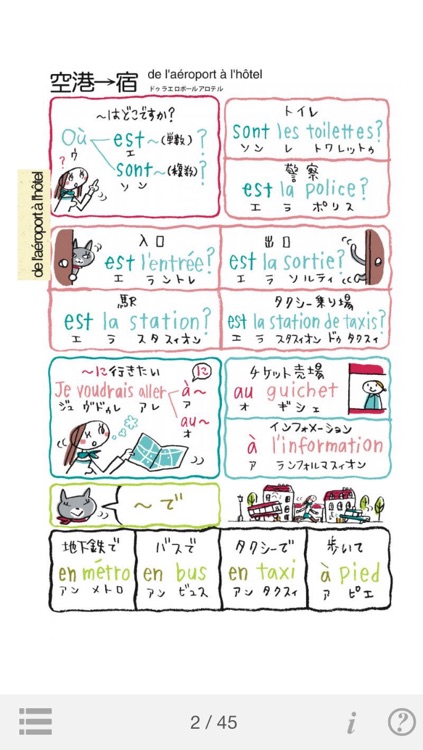 空港→宿 de l'aéroport à l'hôtel
ドゥ ラエロポール アロテル
de l'aéroport à l'hôtel
～はどこですか?
Où est～(単数)?
ウ エ
sont～(複数)?
ソン
トイレ
sont les toilettes?
ソン レ トワレットゥ
警察
est la police?
エ ラ ポリス
入口
est l'entrée?
エ ラントレ
出口
est la sortie?
エ ラ ソルティ
駅
est la station?
エ ラ スタスィオン
タクシー乗り場
est la station de taxis?
エ ラ スタスィオン ドゥ タクスィ
～に行きたい
に
Je voudrais aller à～
ジュ ヴドゥレ アレ ア
au～
オ
チケット売場
au guichet
オ ギシェ
インフォメーション
à l'information
ア ランフォルマスィオン
～で
地下鉄で
en métro
アン メトロ
バスで
en bus
アン ビュス
タクシーで
en taxi
アン タクスィ
歩いて
à pied
ア ピエ
2 / 45
i ?